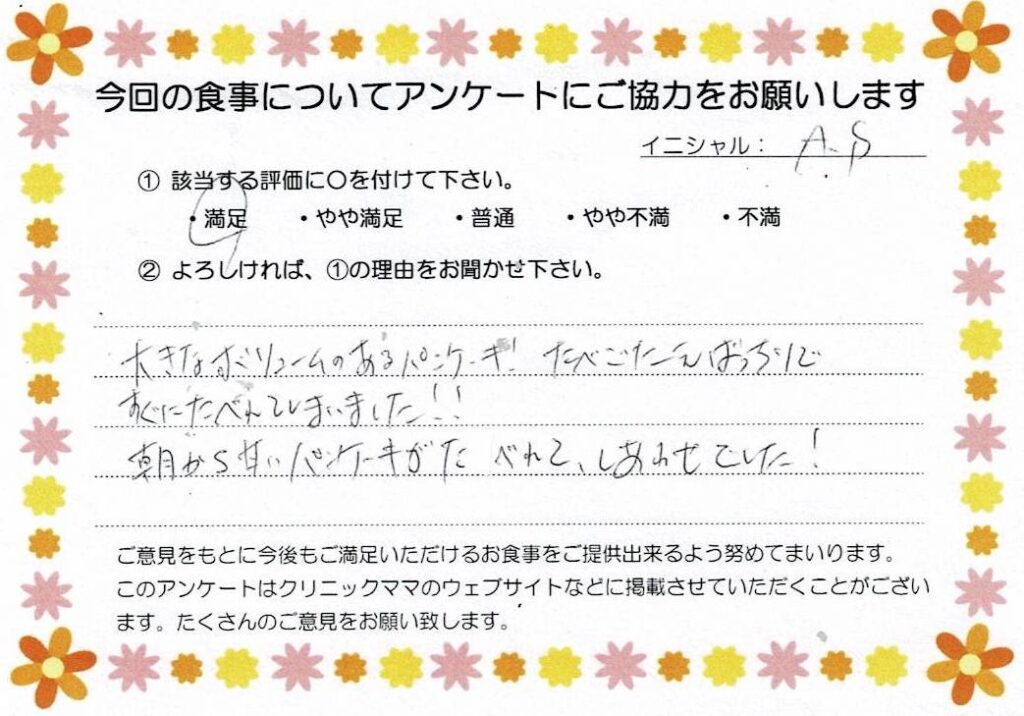 今回の食事についてアンケートにご協力をお願いします
イニシャル： A.S
① 該当する評価に〇を付けて下さい。
・満足 ・やや満足 ・普通 ・やや不満 ・不満
② よろしければ、①の理由をお聞かせ下さい。
大きなボリュームのあるパンケーキ! たべごたえばっちりで
すぐにたべれてしまいました!!
朝から甘いパンケーキがたべれて、しあわせでした!
ご意見をもとに今後もご満足いただけるお食事をご提供出来るよう努めてまいります。
このアンケートはクリニックママのウェブサイトなどに掲載させていただくことがござい
ます。たくさんのご意見をお願い致します。